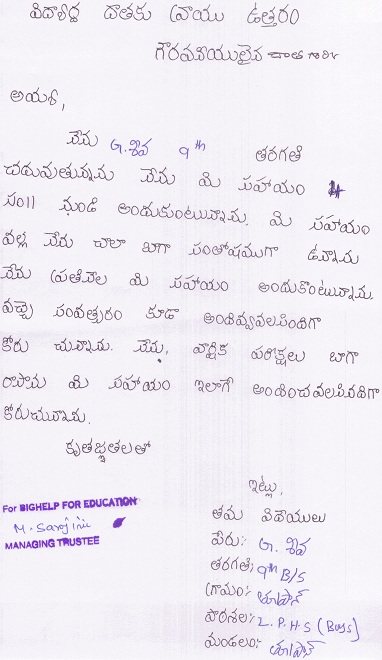 విద్యార్థి దాతకు వ్రాయు ఉత్తరం
గౌరవనీయులైన దాత గారికి
అయ్యా,
నేను G. శివ 9th తరగతి
చదువుతున్నాను నేను మి సహాయం 4
సం॥ నుండి అందుకుంటున్నాను. మి సహాయం
వల్ల నేను చాలా బాగా సంతోషముగా ఉన్నాను
నేను ప్రతినెల మి సహాయం అందుకొంటున్నాను
వచ్చే సంవత్సరం కూడా అందివ్వవలసిందిగా
కోరు చున్నాను. నేను, వార్షిక పరీక్షలు బాగా
రాసాను మి సహాయం ఇలాగే అందించవలసినదిగా
కోరుచున్నాను.
కృతజ్ఞతలతో
ఇట్లు,
తమ విధేయులు
పేరు: G. శివ
తరగతి: 9th B/S
గ్రామం: తూప్రాన్
పాఠశాల: Z.P.H.S (Boys)
మండలం: తూప్రాన్
For BIGHELP FOR EDUCATION
M. Sarojini
MANAGING TRUSTEE